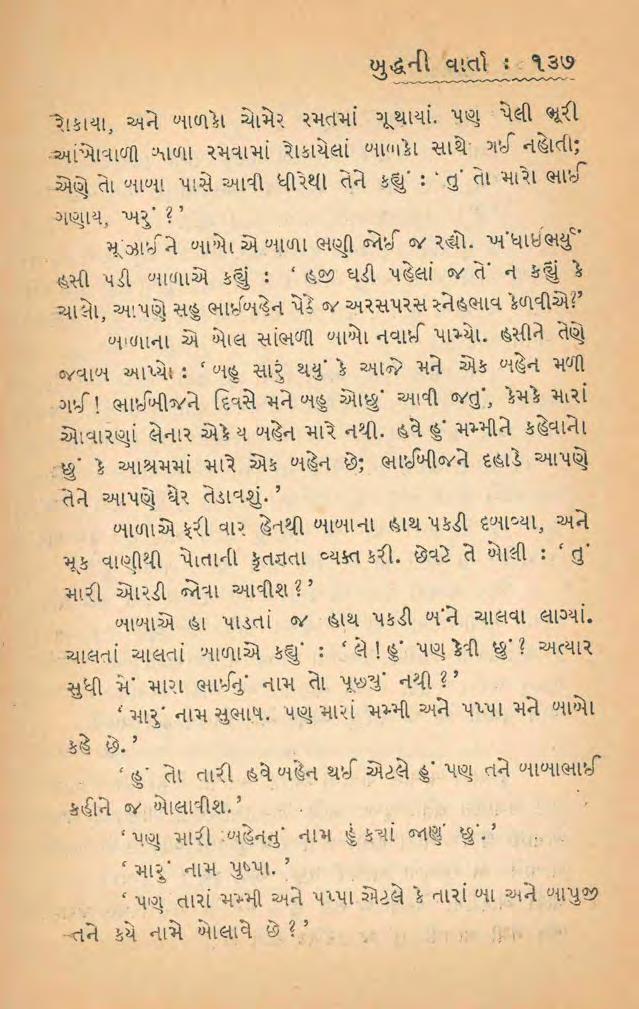 બુદ્ધની વાર્તા : ૧૩૭
રોકાયા, અને બાળકો ચોમેર રમતમાં ગૂથાયાં. પણ પેલી ભૂરી
આંખોવાળી બાળા રમવામાં રોકાયેલાં બાળકો સાથે ગઈ નહોતી;
એણે તો બાબા પાસે આવી ધીરેથી તેને કહ્યું : ‘ તું તો મારો ભાઈ
ગણાય, ખરું ? ’
મૂંઝાઈને બાબો એ બાળા ભણી જોઈ જ રહ્યો. ખંધાઈભર્યું
હસી પડી બાળાએ કહ્યું : ‘ હજી ઘડી પહેલાં જ તેં ન કહ્યું કે
ચાલો, આપણે સહુ ભાઈબહેન પેઠે જ અરસપરસ સ્નેહભાવ કેળવીએ?’
બાળાના એ બોલ સાંભળી બાબો નવાઈ પામ્યો. હસીને તેણે
જવાબ આપ્યો : ‘ બહુ સારું થયું કે આજે મને એક બહેન મળી
ગઈ ! ભાઈબીજને દિવસે મને બહુ ઓછું આવી જતું, કેમકે મારાં
ઓવારણાં લેનાર એકે ય બહેન મારે નથી. હવે હું મમ્મીને કહેવાનો
છું કે આશ્રમમાં મારે એક બહેન છે; ભાઈબીજને દહાડે આપણે
તેને આપણે ઘેર તેડાવશું. ’
બાળાએ ફરી વાર હેતથી બાબાના હાથ પકડી દબાવ્યા, અને
મૂક વાણીથી પોતાની કૃતજ્ઞતા વ્યક્ત કરી. છેવટે તે બોલી : ‘ તું
મારી ઓરડી જોવા આવીશ ? ’
બાબાએ હા પાડતાં જ હાથ પકડી બંને ચાલવા લાગ્યાં.
ચાલતાં ચાલતાં બાળાએ કહ્યું : ‘ લે ! હું પણ કેવી છું ? અત્યાર
સુધી મેં મારા ભાઈનું નામ તો પૂછ્યું નથી ? ’
‘ મારું નામ સુભાષ. પણ મારાં મમ્મી અને પપ્પા મને બાબો
કહે છે. ’
‘ હું તો તારી હવે બહેન થઈ એટલે હું પણ તને બાબાભાઈ
કહીને જ બોલાવીશ. ’
‘ પણ મારી બહેનનું નામ હું કયાં જાણું છું. ’
‘ મારું નામ પુષ્પા. ’
‘ પણ તારાં મમ્મી અને પપ્પા એટલે કે તારાં બા અને બાપુજી
તને કયે નામે બોલાવે છે ? ’